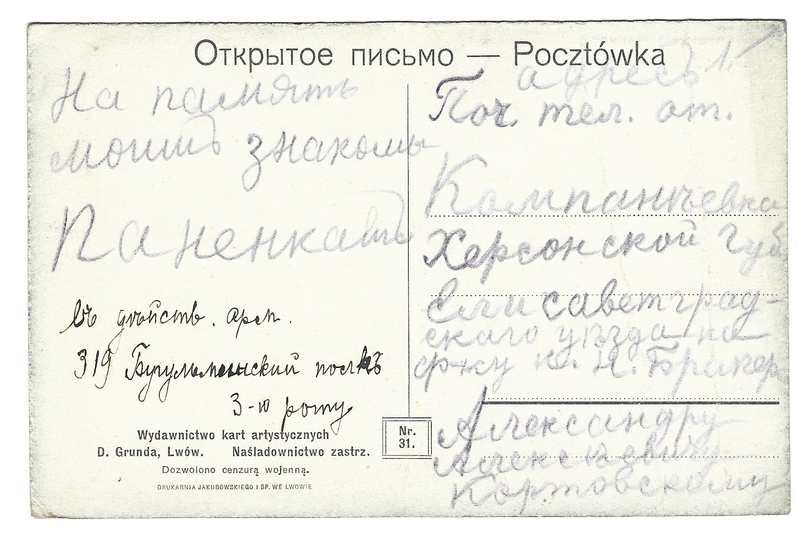 Открытое письмо — Pocztówka
На память
моимъ знакомы
Паненкамъ
въ действ. арм.
319 Бугульменский полкъ
3-ю роту
Wydawnictwo kart artystycznych
D. Grunda, Lwów. Naśladownictwo zastrz.
Dozwolono cenzurą wojenną.
DRUKARNIA JAKUBOWSKIEGO I SP. WE LWOWIE
Nr.
31.
адресъ
Поч. тел. от.
Компанѣевка
Херсонской Губ
Елисаветград-
скаго уѣзда на
Александру
Алексѣевичу
Кортовскому